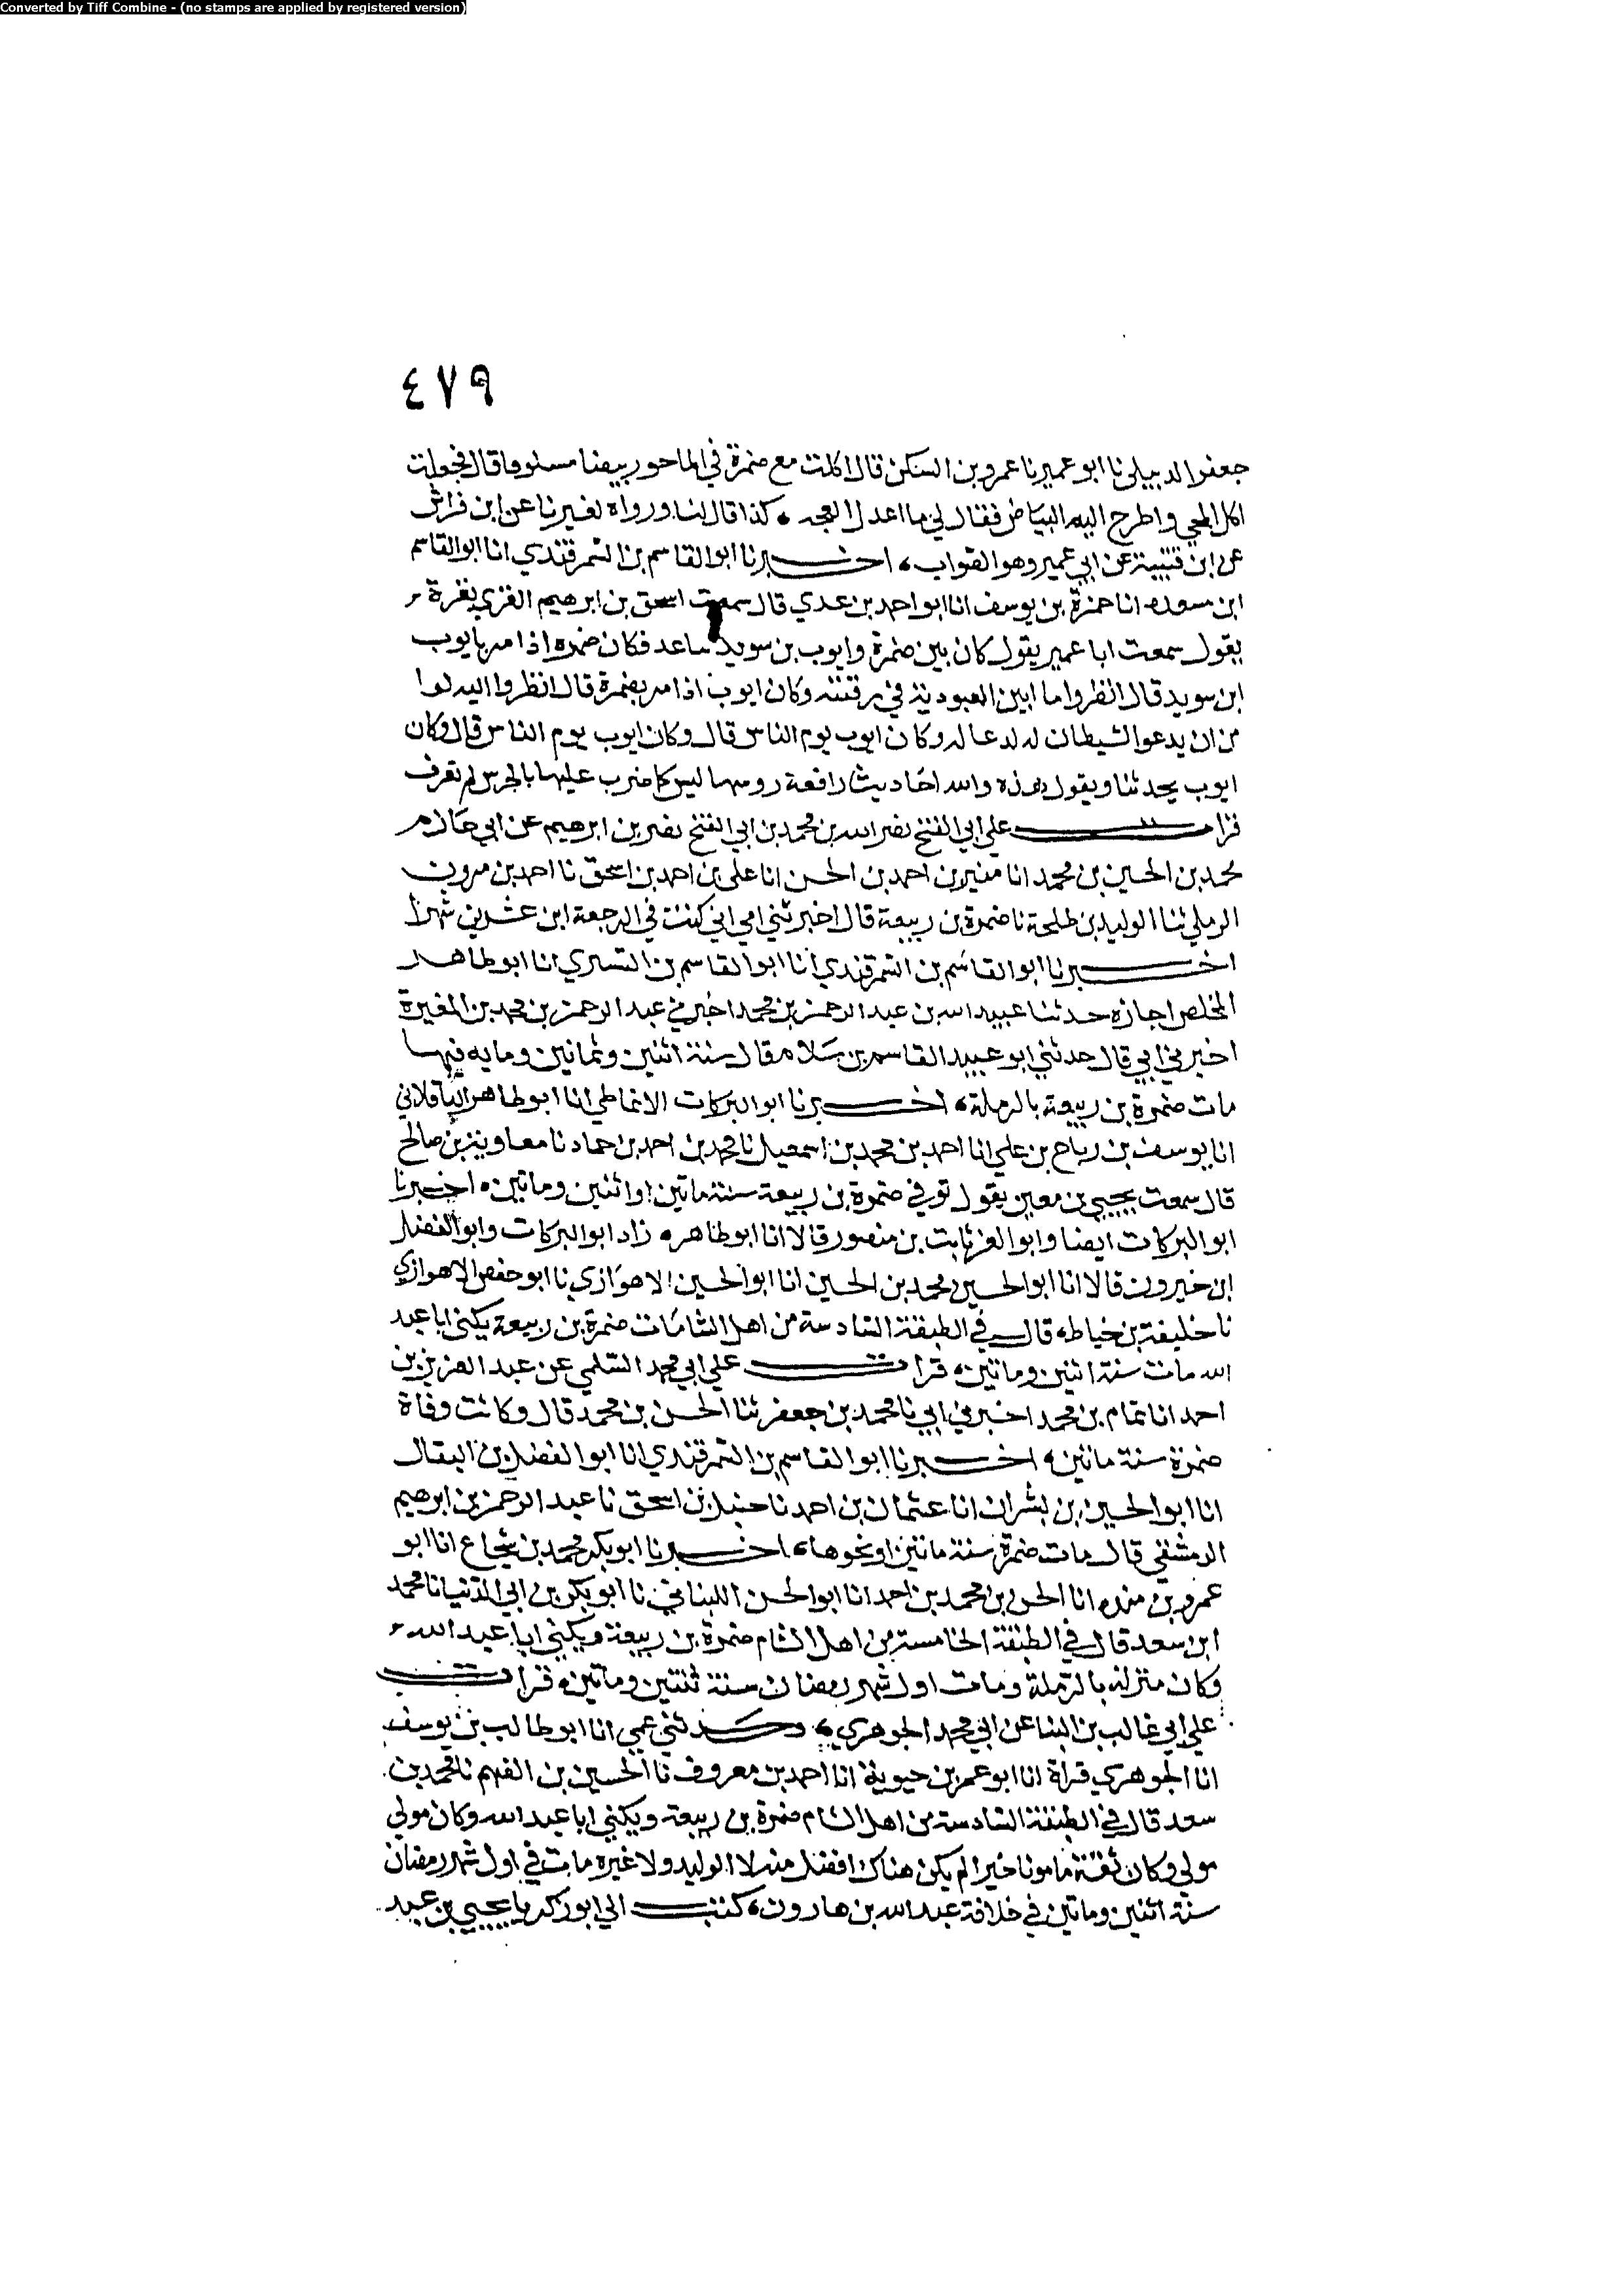 Converted by Tiff Combine - (no stamps are applied by registered version)
٤٧٩
جعفر الديبلي نا ابو عمير نا عمرو بن السكن قال اكلت مع ضمرة في الماحور بيضا مسلوقا قال فجعلت
اكل المحي واطرح اليه البياض فقال لي ما اعدل العجه كذا قال لنا ورواه لغيرنا عن ابن فراش
عن ابن قتيبة عن ابي عمير وهو القواب اخبرنا ابو القاسم بن السمرقندي انا ابو القاسم
ابن سعده انا حمزة بن يوسف انا ابو احمد بن عدي قال سمعت اسحق بن ابرهيم الغزي بغزة
يقول سمعت ابا عمير يقول كان بين ضمرة وايوب بن سويد ساعد فكان ضمره اذا مر بايوب
ابن سويد قال انظروا ما ابين العبودية في رقبته وكان ايوب اذا مر بضمرة قال انظروا اليه لو
من ان يدعو الشيطان له لدعا له وكان ايوب يوم الناس قال وكان ايوب يوم الناس قال وكان
ايوب يحدثنا ويقول هذه والله احاديث رافعة روسها ليس كا ضرب عليها بالجرس لم تعرف
قرات علي ابي الفتح نصر الله بن محمد بن ابي الفتح نصر بن ابرهيم عن ابي حازم
محمد بن الحسين بن محمد انا منير بن احمد بن الحسن انا علي بن احمد بن اسحق نا احمد بن مرون
الرملي ثنا الوليد بن طلحة نا ضمرة بن ربيعة قال اخبرتني امي اني كنت في الرجعة ابن عشرين شهرا
اخبرنا ابو القاسم بن السمرقندي انا ابو القاسم بن التسري انا ابو طاهر
المخلص اجازه حدثنا عبيد الله بن عبد الرحمن بن محمد اخبرني عبد الرحمن بن محمد بن المغيرة
اخبرني ابي قال حدثني ابو عبيد القاسم بن سلام قال سنة اثنين وثمانين ومايه فيها
مات ضمرة بن ربيعة بالرملة اخبرنا ابو البركات الانماطي انا ابو طاهر الباقلاني
انا يوسف بن رباح بن علي انا احمد بن محمد بن اسمعيل نا محمد بن احمد بن حماد نا معاوية بن صالح
قال سمعت يحيي بن معين يقول توفي ضمرة بن ربيعة سنة ماتين او اثنين وماتين اخبرنا
ابو البركات ايضا وابو العز ثابت بن منصور قالا انا ابو طاهر زاد ابو البركات وابو الفضل
ابن خيرون قالا انا ابو الحسين محمد بن الحسين انا ابو الحسين الاهوازي نا ابو حفص الاهوازي
نا خليفة بن خياط قال في الطبقة السادسة من اهل الشامات ضمرة بن ربيعة يكني ابا عبد
الله مات سنة اثنين وماتين قرات علي ابي محمد السلمي عن عبد العزيز بن
احمد انا تمام بن محمد اخبرني ابي نا محمد بن جعفر ثنا الحسن بن محمد قال وكانت وفاة
ضمرة سنة ماتين اخبرنا ابو القاسم بن السمرقندي انا ابو الفضل بن البقال
انا ابو الحسين بن بشران انا عثمان بن احمد نا حنبل بن اسحق نا عبد الرحمن بن ابرهيم
الدمشقي قال مات ضمرة سنة ماتين او نحوها اخبرنا ابو بكر محمد بن شجاع انا ابو
عمرو بن منده انا الحسن بن محمد بن احمد انا ابو الحسن اللبناني نا ابو بكر بن ابي الدنيا نا محمد
ابن سعد قال في الطبقة الخامسة من اهل الشام ضمرة بن ربيعة ويكني ابا عبد الله
وكان منزله بالرملة ومات اول شهر رمضان سنة ثنتين وماتين قرات
علي ابي غالب بن البنا عن ابي محمد الجوهري وحدثني عمي انا ابو طالب بن يوسف
انا الجوهري قراة انا ابو عمر بن حيوية انا احمد بن معروف نا الحسين بن الفهم نا محمد بن
سعد قال في الطبقة السادسة من اهل الشام ضمرة بن ربيعة ويكني ابا عبد الله وكان مولي
مولي وكان ثقة مامونا خيرا لم يكن هناك افضل منه لا الوليد ولا غيره مات في اول شهر رمضان
سنة اثنين وماتين في خلافة عبد الله بن هارون كتب الي ابو زكريا يحيي بن عبد